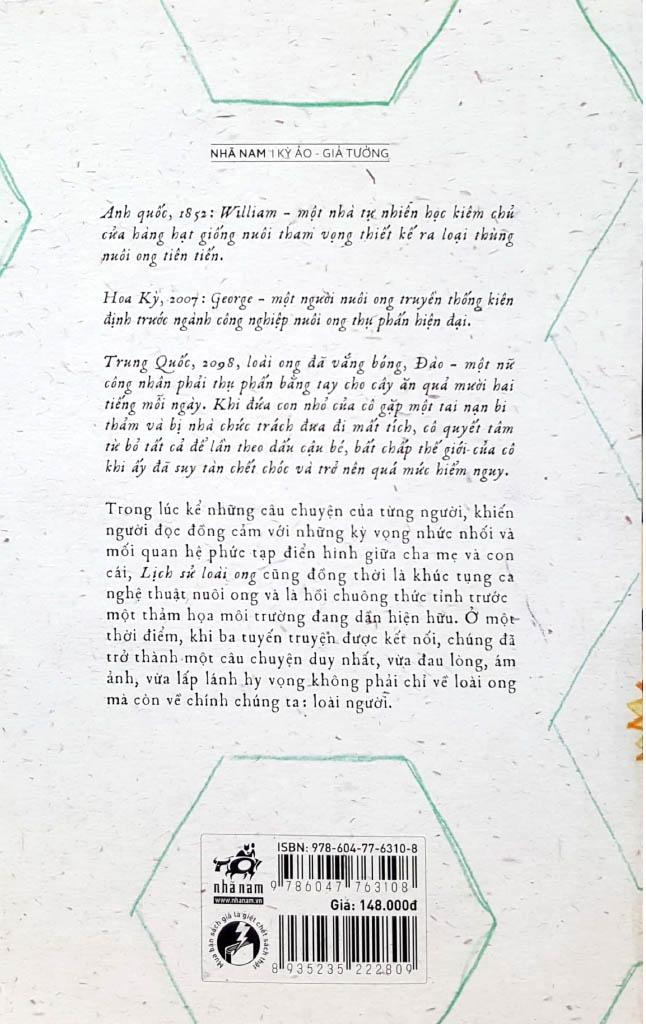 NHÃ NAM | KỲ ẢO - GIẢ TƯỞNG
Anh quốc, 1852: William – một nhà tự nhiên học kiêm chủ
cửa hàng hạt giống nuôi tham vọng thiết kế ra loại thùng
nuôi ong tiên tiến.
Hoa Kỳ, 2007: George – một người nuôi ong truyền thống kiên
định trước ngành công nghiệp nuôi ong thụ phấn hiện đại.
Trung Quốc, 2098, loài ong đã vắng bóng, Đào – một nữ
công nhân phải thụ phấn bằng tay cho cây ăn quả mười hai
tiếng mỗi ngày. Khi đứa con nhỏ của cô gặp một tai nạn bi
thảm và bị nhà chức trách đưa đi mất tích, cô quyết tâm
từ bỏ tất cả để lần theo dấu cậu bé, bất chấp thế giới của cô
khi ấy đã suy tàn chết chóc và trở nên quá mức hiểm nguy.
Trong lúc kể những câu chuyện của từng người, khiến
người đọc đồng cảm với những kỳ vọng nhức nhối và
mối quan hệ phức tạp điển hình giữa cha mẹ và con
cái, Lịch sử loài ong cũng đồng thời là khúc tụng ca
nghệ thuật nuôi ong và là hồi chuông thức tỉnh trước
một thảm họa môi trường đang dần hiện hữu. Ở một
thời điểm, khi ba tuyến truyện được kết nối, chúng đã
trở thành một câu chuyện duy nhất, vừa đau lòng, ám
ảnh, vừa lấp lánh hy vọng không phải chỉ về loài ong
mà còn về chính chúng ta: loài người.
nhã nam
www.nhanam.vn
Mua bán sách giả là giết chết sách thật
ISBN: 978-604-77-6310-8
9 786047 763108
Giá: 148.000đ
8 935235 222809